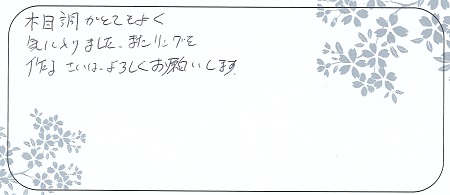 木目調がとてもよく
気に入りました。またリングを
作るさいは、よろしくお願いします